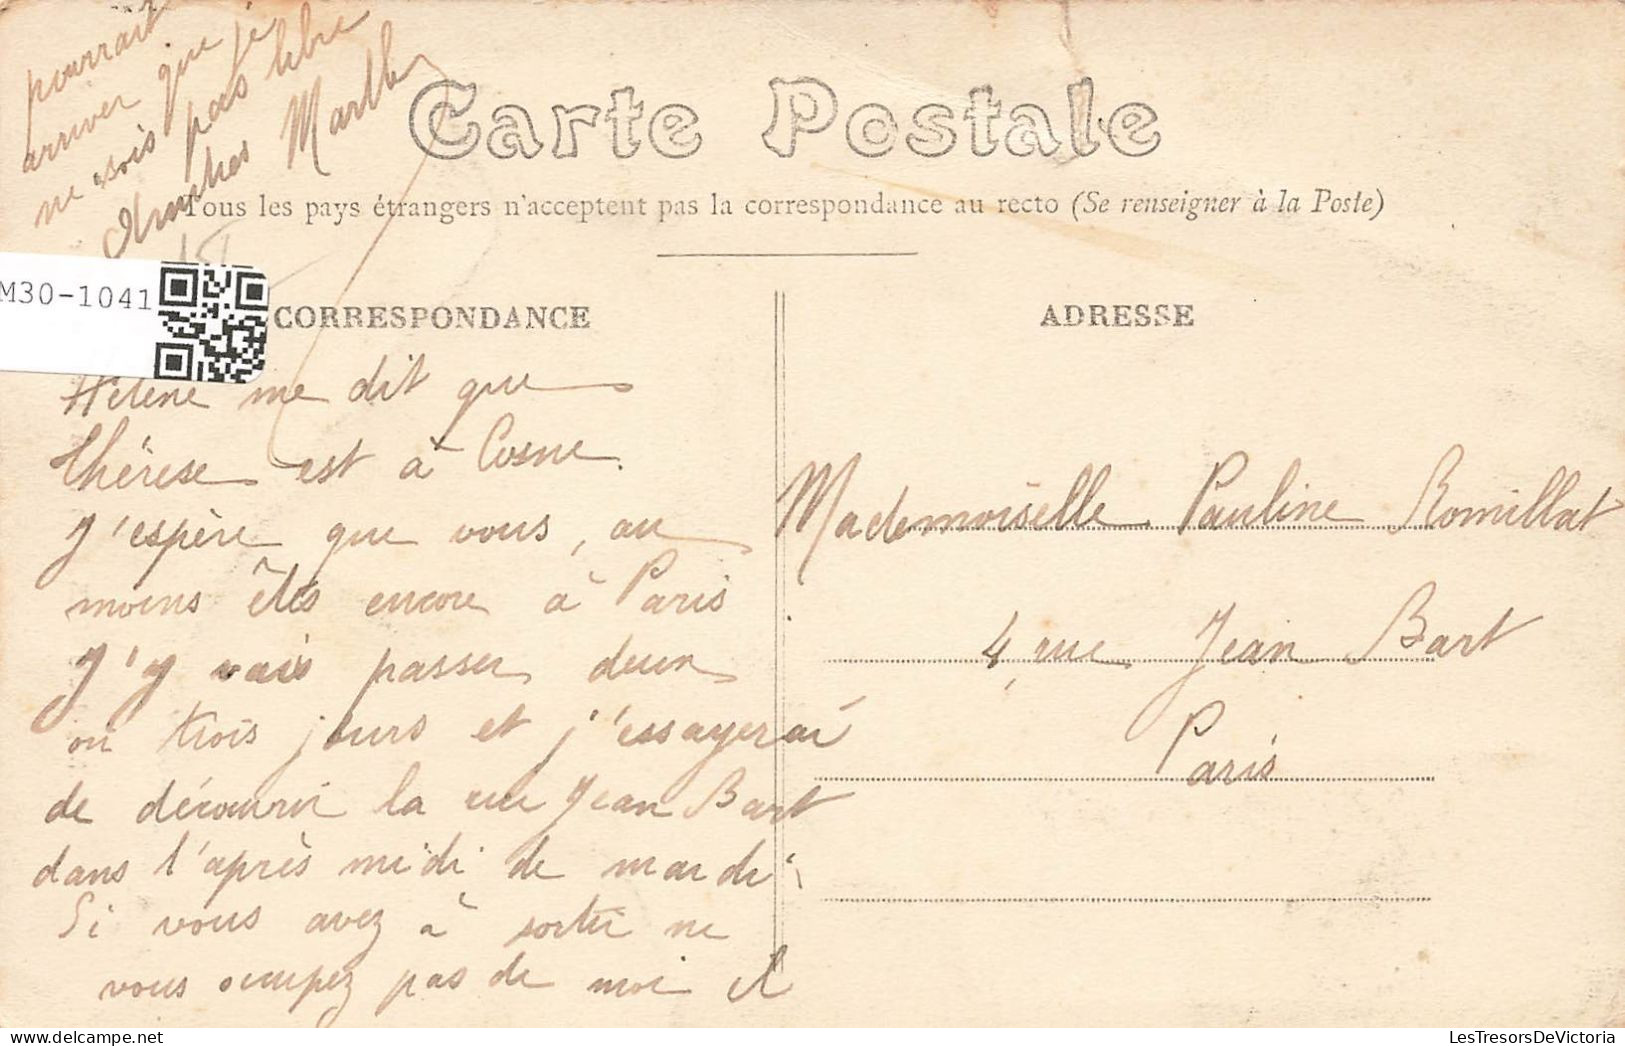 pourrait
arriver que je
ne sois pas libre
Amitiés Marthe
Carte Postale
Tous les pays étrangers n'acceptent pas la correspondance au recto (Se renseigner à la Poste)
M30-1041
CORRESPONDANCE
Hélène me dit que
Thérèse est à Cosne.
J'espère que vous, au
moins êtes encore à Paris
J'y vais passer deux
ou trois jours et j'essayerai
de découvrir la rue Jean Bart
dans l'après midi de mardi
Si vous avez à sortir ne
vous occupez pas de moi il
ADRESSE
Mademoiselle Pauline Romillat
4, rue Jean Bart
Paris
LesTresorsDeVictoria